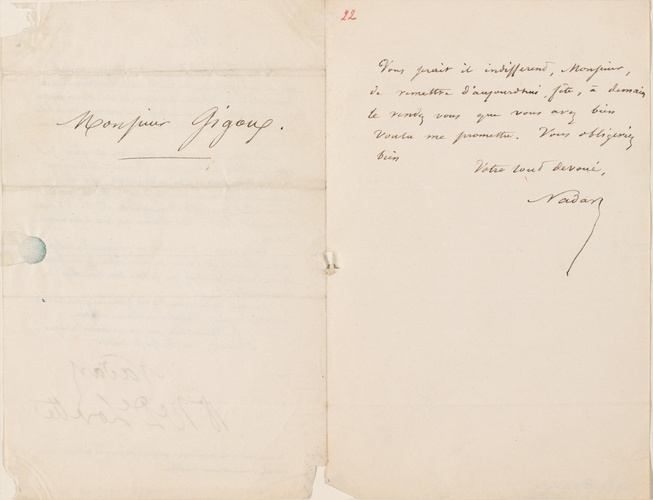 Monsieur Gigoux.
22
Vous serait il indifferend, Monsieur,
de remettre d'aujourd'hui, fête, à demain
le rendez vous que vous avez bien
voulu me promettre. Vous obligeriez
bien
Votre tout devoué,
Nadar
Nadar